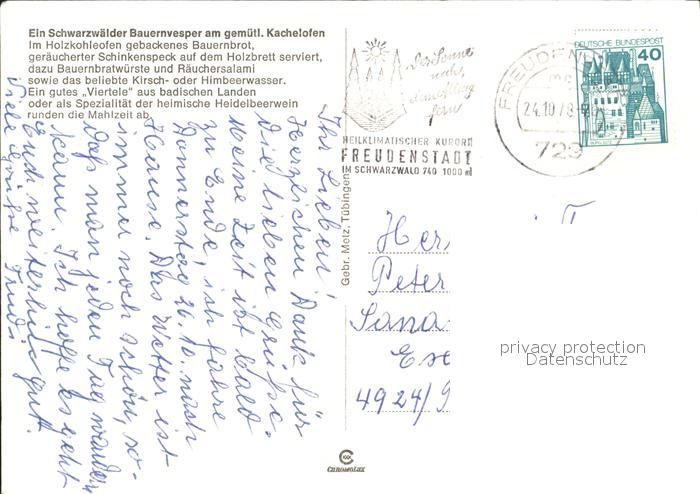 Ein Schwarzwälder Bauernvesper am gemütl. Kachelofen
Im Holzkohleofen gebackenes Bauernbrot,
geräucherter Schinkenspeck auf dem Holzbrett serviert,
dazu Bauernbratwürste und Räuchersalami
sowie das beliebte Kirsch- oder Himbeerwasser.
Ein gutes „Viertele" aus badischen Landen
oder als Spezialität der heimische Heidelbeerwein
runden die Mahlzeit ab.
Ihr Lieben!
Herzlichen Dank für
die lieben Grüße.
Meine Zeit ist bald
zu Ende, ich fahre
Donnerstag 26.10. nach
Hause. Das Wetter ist
immer noch schön, so-
daß man jeden Tag wandern
kann. Ich hoffe es geht
Euch weiterhin gut.
Viele Grüße Trudi
Gebr. Metz, Tübingen
CHROMOLUX
Der Sonne
nah,
dem Alltag
fern
HEILKLIMATISCHER KURORT
FREUDENSTADT
IM SCHWARZWALD 740 1000 m
FREUDEN
24.10.78
729
DEUTSCHE BUNDESPOST
40
Her
Peter
Sana
4924/9
privacy protection
Datenschutz